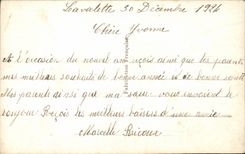 Lavalette 30 Décembre 1926
Chère Yvonne
A l'occasion du nouvel an reçois ainsi que tes parents
mes meilleurs souhaits de bonne année et de bonne santé
Mes parents ainsi que ma sœur vous envoient le
bonjour Reçois les meilleurs baisers d'une amie
Marcelle